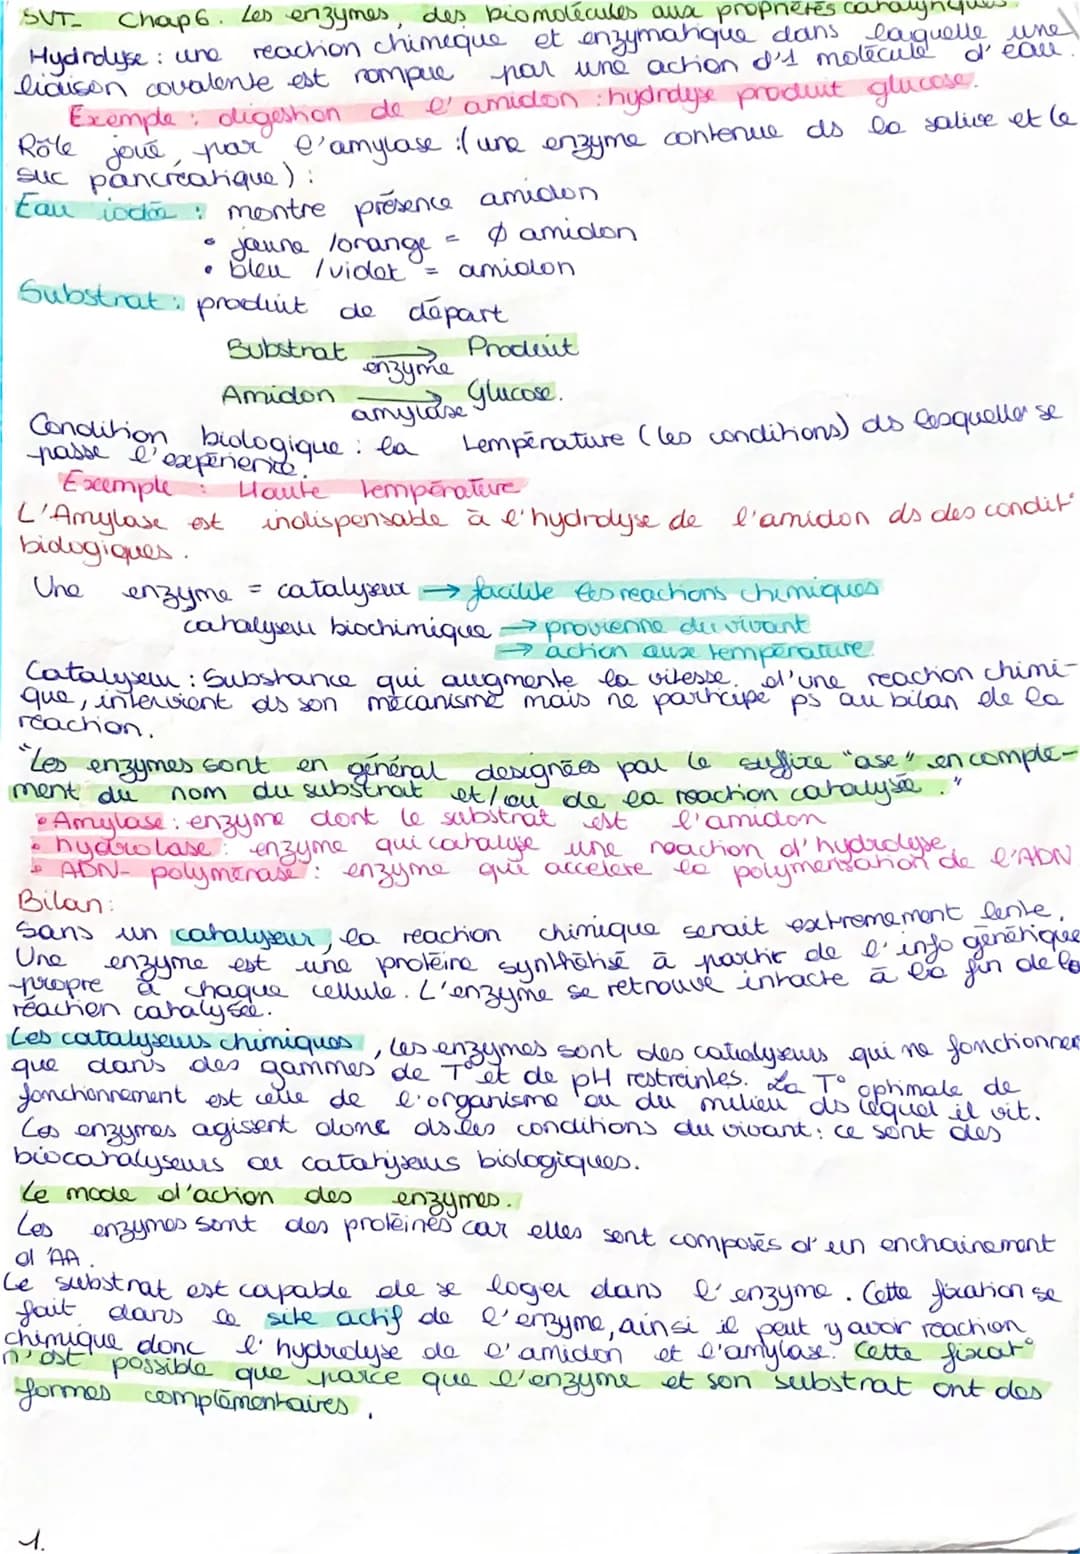 SVT- Chap6. Les enzymes, des biomolécules aux propriétés catalytiques.
Hydrolyse : une reaction chimique et enzymatique dans laquelle une
liaison covalente est rompue par une action d'1 molécule d'eau.
Exemple : digestion de l'amidon : hydrolyse produit glucose.
Rôle joué par l'amylase : (une enzyme contenue ds la salive et le
suc pancréatique) :
Eau iodée : montre présence amidon
• jaune /orange = Ø amidon
• bleu /violet = amidon
Substrat : produit de départ
Substrat → Produit
enzyme
Amidon → Glucose.
amylase
Condition biologique : la température (les conditions) ds lesquelles se
passe l'expérience.
Exemple : Haute température
L'Amylase est indispensable à l'hydrolyse de l'amidon ds des condit°
biologiques.
Une enzyme = catalyseur → facilite les reactions chimiques
catalyseur biochimique → provienne du vivant
→ action aux température.
Catalyseur : Substance qui augmente la vitesse d'une reaction chimi-
que, intervient ds son mécanisme mais ne participe ps au bilan de la
réaction.
"Les enzymes sont en général designées par le suffixe "ase" en complé-
ment du nom du substrat et/ou de la reaction catalysé."
• Amylase : enzyme dont le substrat est l'amidon
• hydrolase : enzyme qui catalyse une reaction d'hydrolyse
• ADN-polymérase : enzyme qui accelère la polymérisation de l'ADN
Bilan :
Sans un catalyseur, la reaction chimique serait extremement lente.
Une enzyme est une protéine synthétisé à partir de l'info génétique
propre à chaque cellule. L'enzyme se retrouve intacte à la fin de la
réaction catalysée.
Les catalyseurs chimiques, les enzymes sont des catalyseurs qui ne fonctionnent
que dans des gammes de T° et de pH restreintes. La T° optimale de
fonctionnement est celle de l'organisme ou du milieu ds lequel il vit.
Les enzymes agissent donc ds les conditions du vivant : ce sont des
biocatalyseurs ou catalyseurs biologiques.
Le mode d'action des enzymes.
Les enzymes sont des protéines car elles sont composés d'un enchainement
d'AA.
Le substrat est capable de se loger dans l'enzyme. Cette fixation se
fait dans le site actif de l'enzyme, ainsi il peut y avoir réaction
chimique donc l'hydrolyse de l'amidon et l'amylase. Cette fixat°
n'est possible que parce que l'enzyme et son substrat ont des
formes complémentaires.
1.